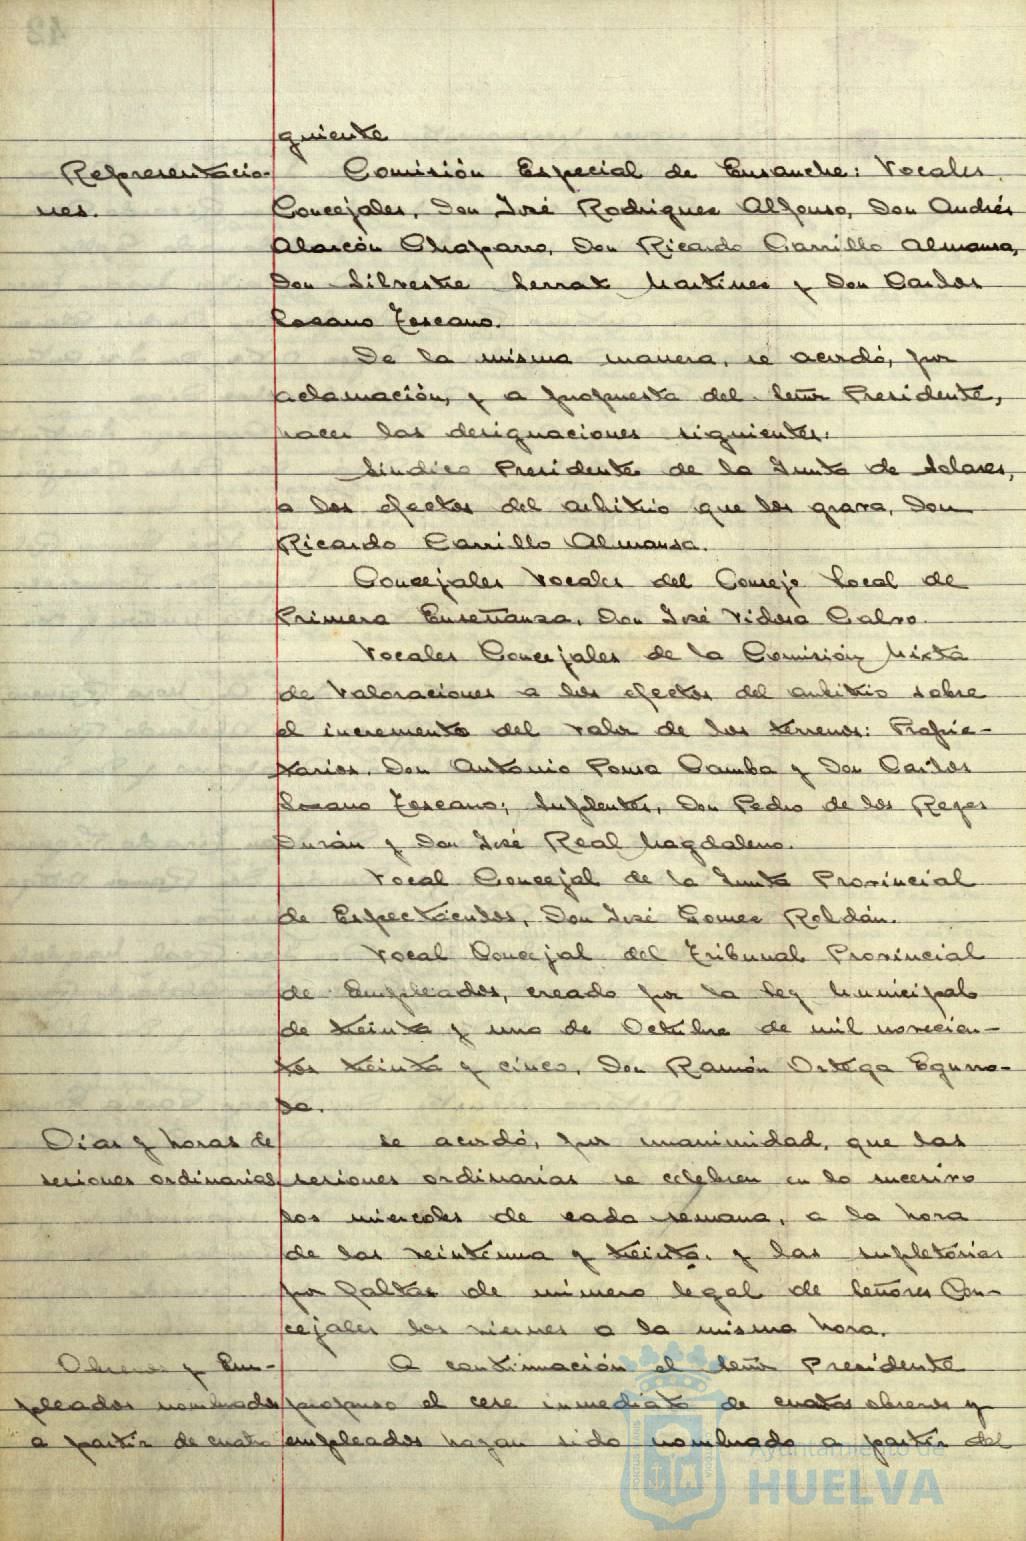 guiente
Representacio-
nes.
Comisión Especial de Ensanche: Vocales
Concejales, Don José Rodriguez Alfonso, Don Andrés
Alarcón Chaparro, Don Ricardo Carrillo Almansa,
Don Silvestre Serrat Martinez y Don Carlos
Lozano Toscano.
De la misma manera, se acordó, por
aclamación, y a propuesta del Señor Presidente,
hacer las designaciones siguientes:
Sindico Presidente de la Junta de Solares,
a los efectos del arbitrio que los grava, Don
Ricardo Carrillo Almansa.
Concejales Vocales del Consejo Local de
Primera Enseñanza, Don José Vidosa Calvo.
Vocales Concejales de la Comisión Mixta
de Valoraciones a los efectos del arbitrio sobre
el incremento del valor de los terrenos: Propie-
tarios, Don Antonio Pousa Camba y Don Carlos
Lozano Toscano; Suplentes, Don Pedro de los Reyes
Durán y Don José Real Magdaleno.
Vocal Concejal de la Junta Provincial
de Espectáculos, Don José Gomez Roldán.
Vocal Concejal del Tribunal Provincial
de Empleados, creado por la Ley Municipal
de treinta y uno de Octubre de mil novecien-
tos treinta y cinco, Don Ramón Ortega Egurro-
la.
Dias y horas de
sesiones ordinarias
Se acordó, por unanimidad, que las
sesiones ordinarias se celebren en lo sucesivo
los miercoles de cada semana, a la hora
de las veintiuna y treinta, y las supletorias
por faltas de número legal de Señores Con-
cejales los viernes a la misma hora.
Obreros y Em-
pleados nombrados
a partir de cuatro
A continuación el Señor Presidente
propuso el cese inmediato de cuatos obreros y
empleados hayan sido nombrado a partir del
Ayuntamiento de
HUELVA